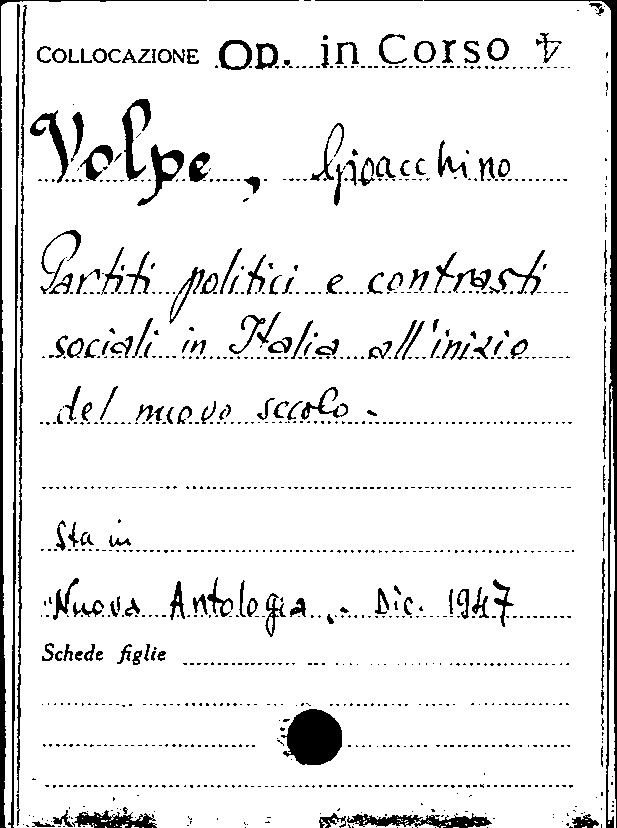 COLLOCAZIONE OD. in Corso 4
Volpe, Gioacchino
Partiti politici e contrasti
sociali in Italia all'inizio
del nuovo secolo -
Sta in
"Nuova Antologia„ - Dic. 1947
Schede figlie